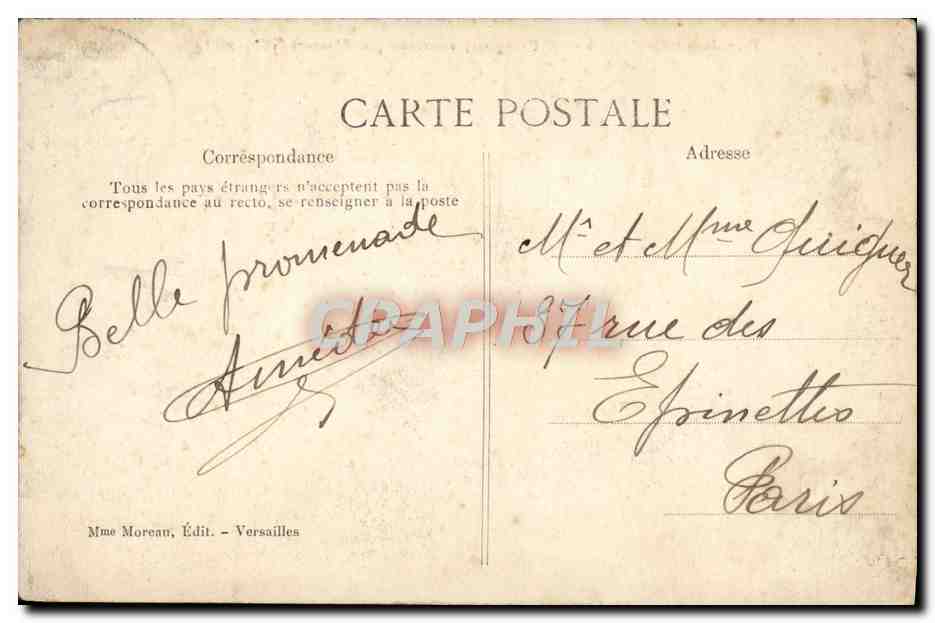 CARTE POSTALE
Correspondance
Tous les pays étrangers n'acceptent pas la
correspondance au recto, se renseigner à la poste
Belle promenade
Mme Moreau, Édit. - Versailles
Adresse
Mr et Mme
37 rue des
Epinettes
Paris
CPAPHIL